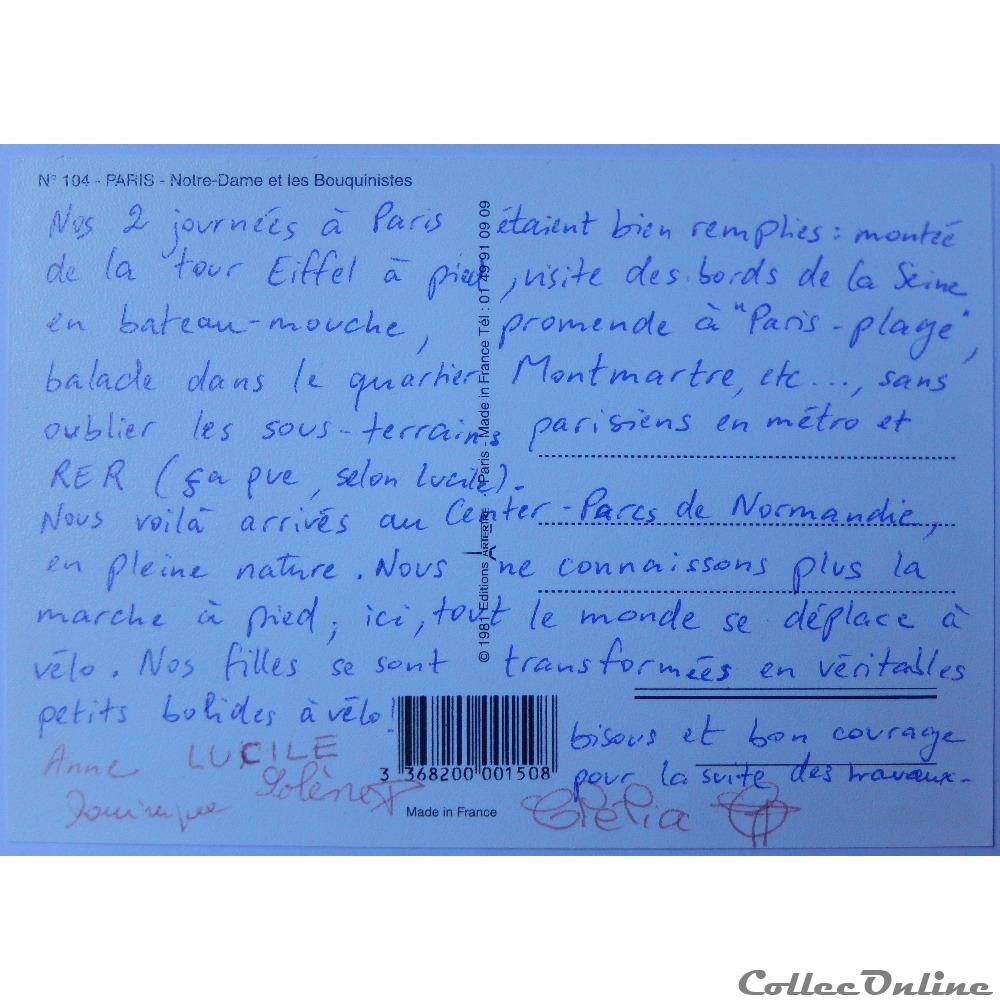 N° 104 - PARIS - Notre-Dame et les Bouquinistes
Nos 2 journées à Paris étaient bien remplies : montée
de la tour Eiffel à pied, visite des bords de la Seine
en bateau-mouche, promende à "Paris-plage",
balade dans le quartier Montmartre, etc..., sans
oublier les sous-terrains parisiens en métro et
RER (ça pue, selon Lucile).
Nous voilà arrivés au Center-Parcs de Normandie,
en pleine nature. Nous ne connaissons plus la
marche à pied ; ici, tout le monde se déplace à
vélo. Nos filles se sont transformées en véritables
petits bolides à vélo!
bisous et bon courage
pour la suite des travaux.
Anne LUCILE
Solène
Dominique
Clélia
© 1981 Editions ARTERIRE - Paris - Made in France Tél : 01 49 91 09 09
3 368200 001508
Made in France
CollecOnline